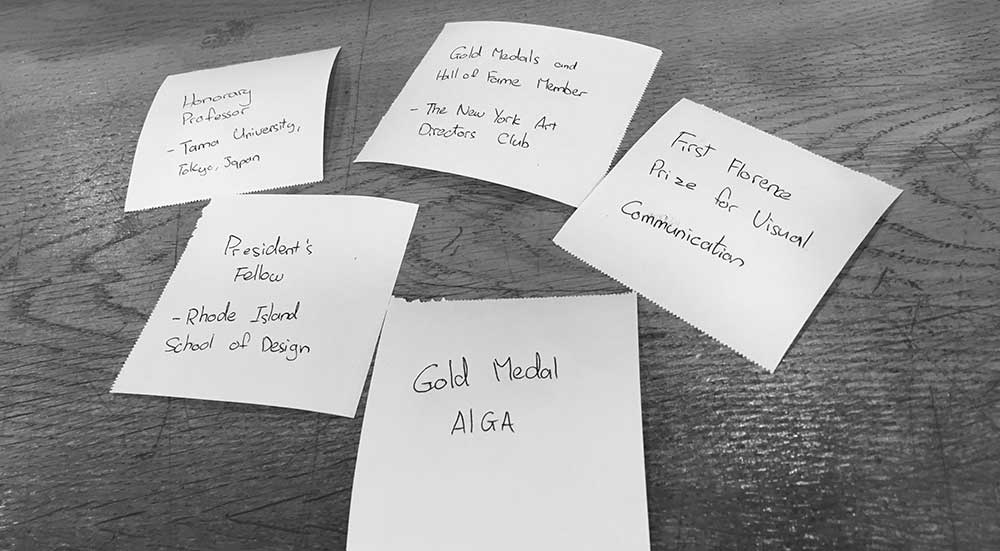 Honorary
Professor
- Tama University,
Tokyo, Japan
Gold Medals and
Hall of Fame Member
- The New York Art
Directors Club
First Florence
Prize for Visual
Communication
President's
Fellow
- Rhode Island
School of Design
Gold Medal
AIGA